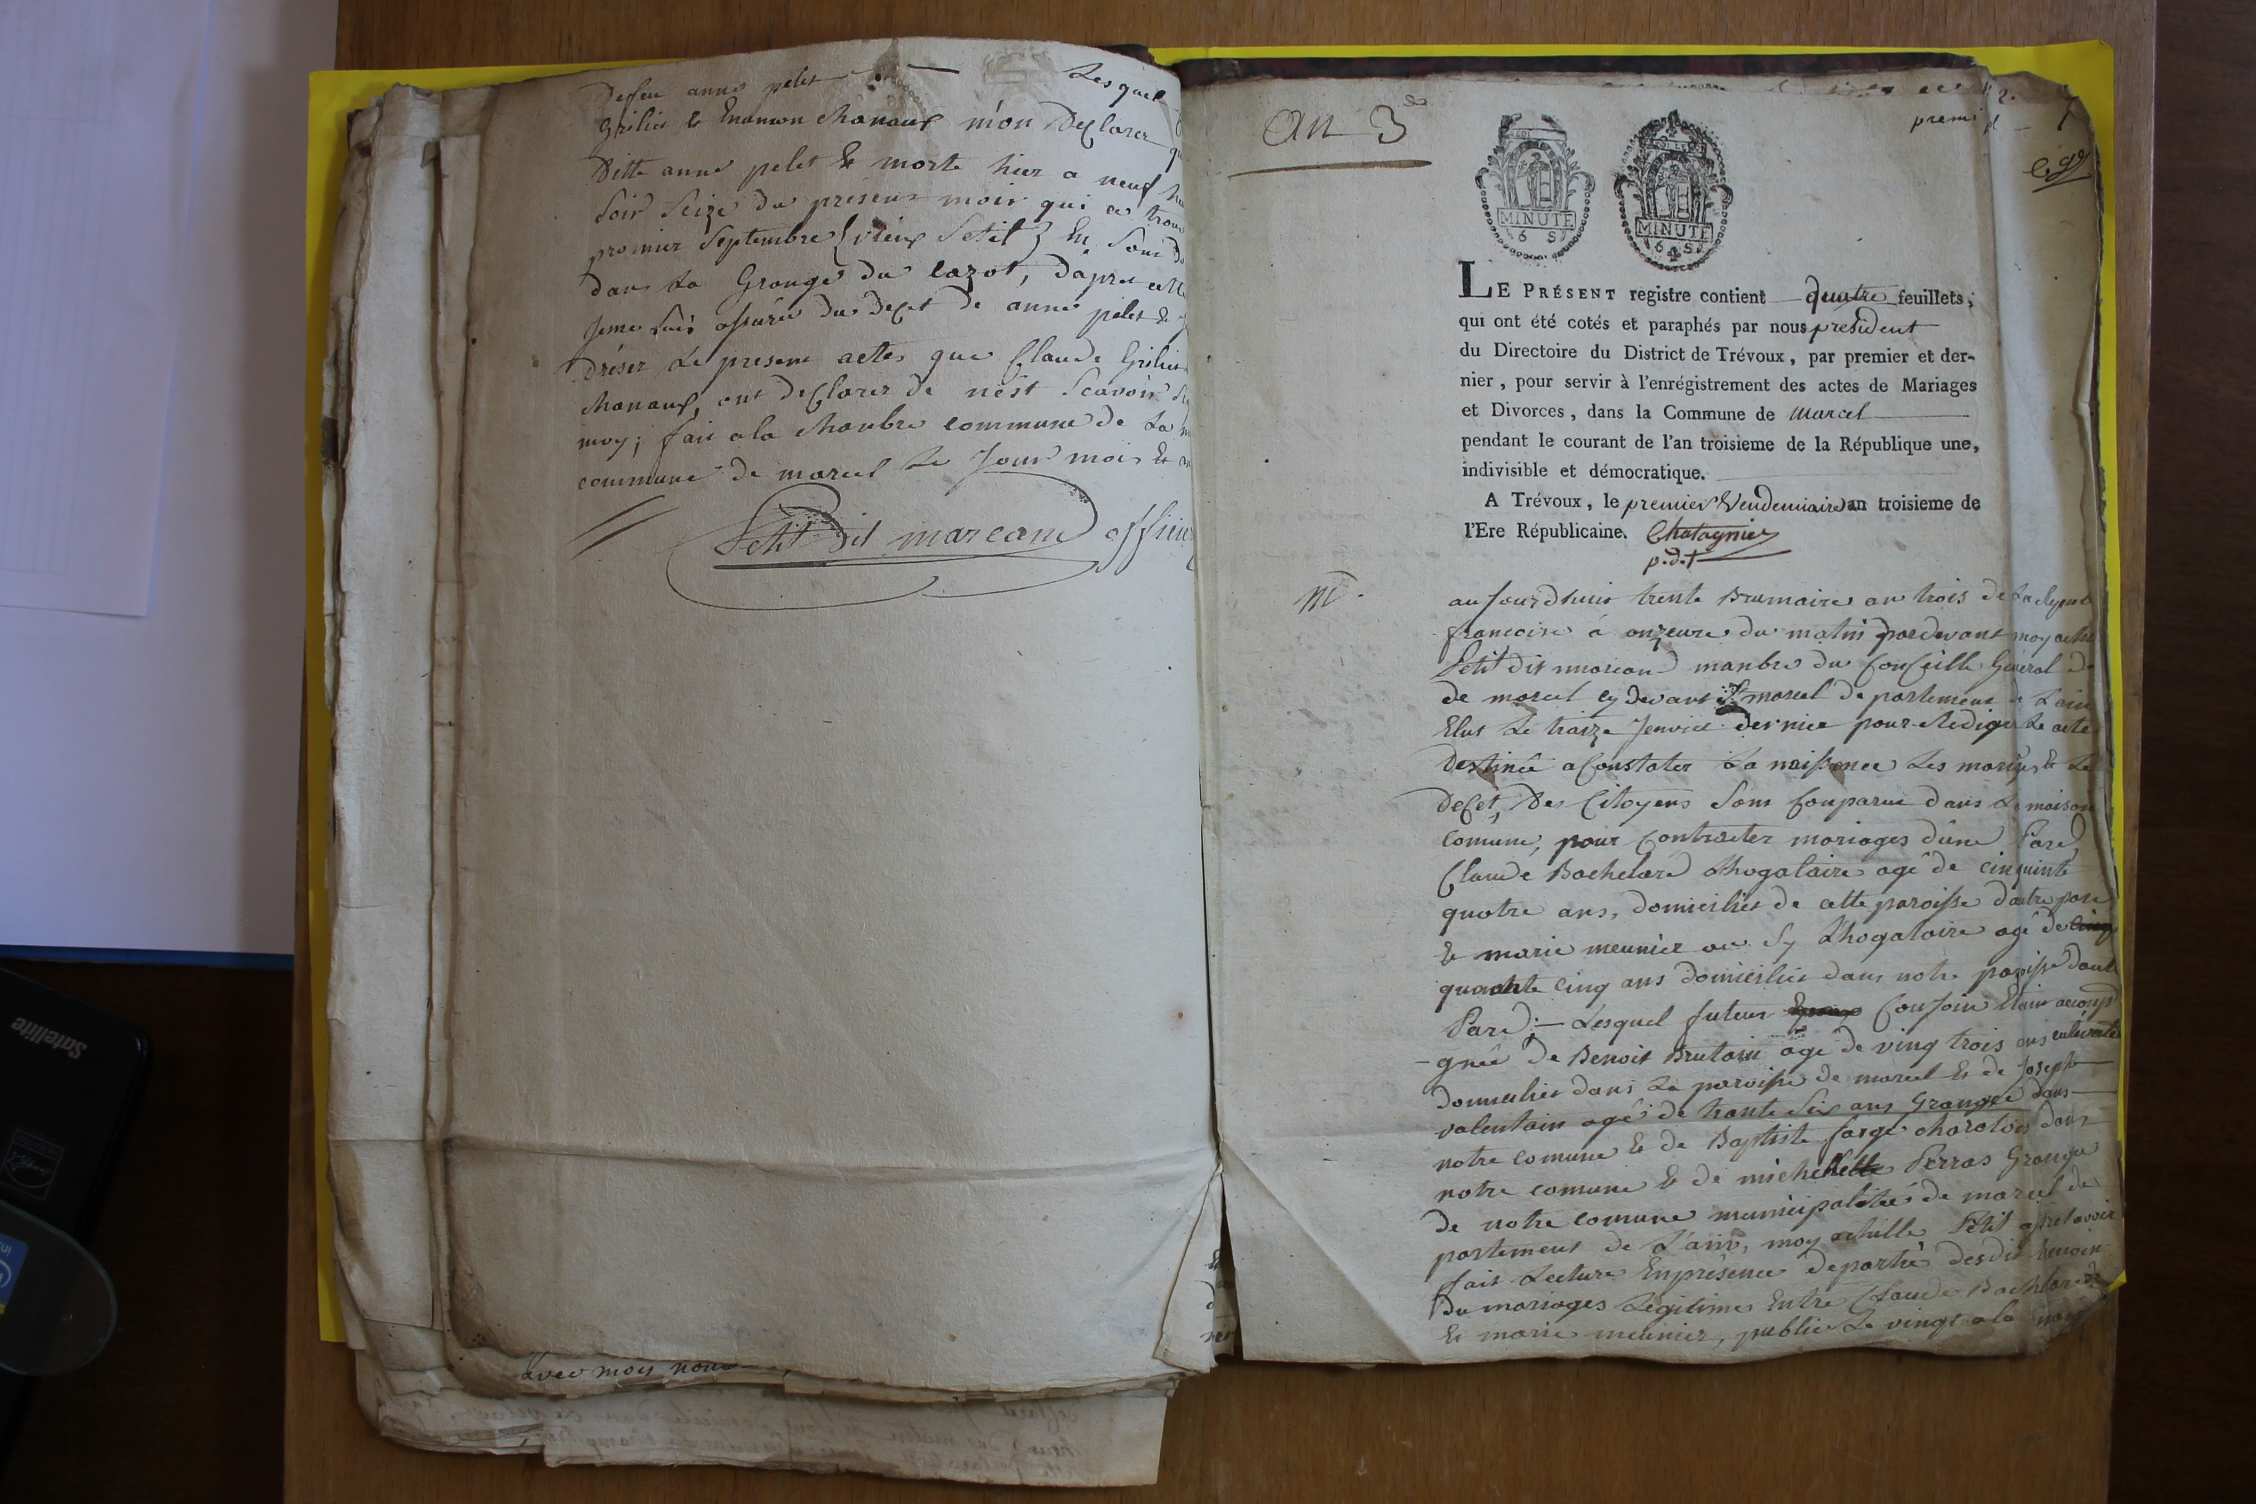 anne pelet Lesquel
Grilier & Enemon Manaux m'on Desclarer
Ditte anne pelet & morte hier a neuf
Soir Seize du présent mois qui ce trouve
promier Septembre (vieux Setil) En Son
dans La Grange du Cazot, d'apres cette
Jeme Suis assurée du Decet de anne pelet &
dréser Le present actes que Claude Grilier
Manaux, ont desclarer de nést Scavoir
moy; fait a la Chanbre commune de La
commune de marcel Le Jour mois &
Petit Dit marcand officier
avec moy nous
an 3
premi
MINUTE
6 S
MINUTE
6 S
LE PRÉSENT registre contient quatre feuillets,
qui ont été cotés et paraphés par nous president
du Directoire du District de Trévoux, par premier et der-
nier, pour servir à l'enrégistrement des actes de Mariages
et Divorces, dans la Commune de marcel
pendant le courant de l'an troisieme de la République une,
indivisible et démocratique.
A Trévoux, le premier Vendemiaire an troisieme de
l'Ere Républicaine. Chatagnier
p.d.t
m.
aujourdhuis trente Brumaire an trois de La
francoise á onzeure du matin pardevant moy
Petit dit marcand manbre du Conseille Géneral
de marcel cy devant St marcel de partement de L'ain
Elus Le traize Jenvier dernier pour Rediger Le acte
Destinée a Constater La naissance Les mariages & Le
deset, des Citoyens Sont Conparue dans La maison
comune, pour Contracter mariages d'une Pare
Claude Bachelard agé de cinquinte
quatre ans, domicilier de cette paroisse d'autre pare
& marie meunier agé de
quarante cinq ans domicilier dans notre paroisse d'autre
Pare; Lesquel futeur Conjoin Etain accomp
gnée de Benoit Brutain agé de vingt trois ans cultivate
domicilier dans La paroisse de marcel & de Joseph
valentain agé de trante Six ans Granger dans
notre comune & de Baptiste farge charolois dans
notre comune & de michelle Perras Granger
de notre comune municipalitée de marcel de
partement de L'ain, moy achille Petit apret avoir
fait Lecture En présence départie desdit temoin
Du mariages Legitimes Entre Claude Bachlard
& marie meunier, publier Le vingt a la
Satellite